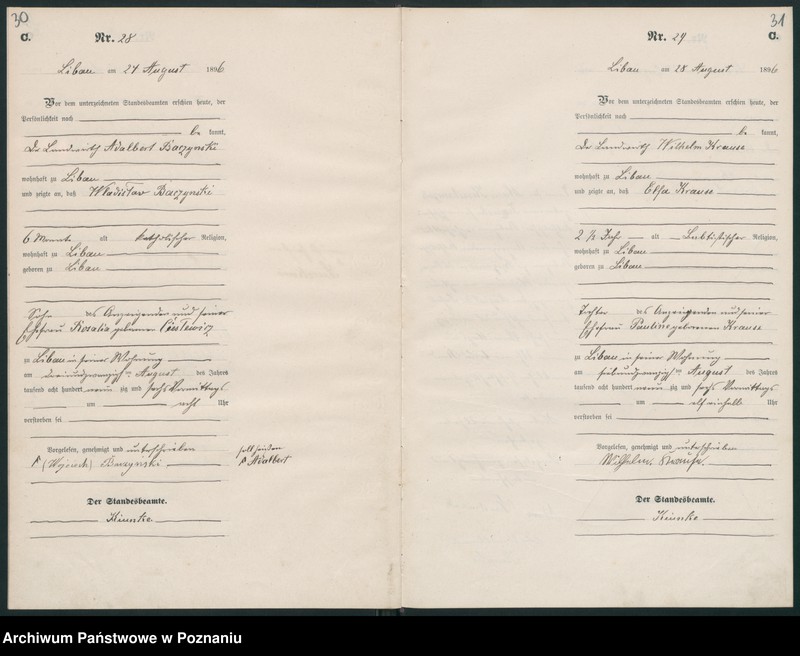 30
C.
Nr. 28
Libau am 24 August 1896
Vor dem unterzeichneten Standesbeamten erschien heute, der
Persönlichkeit nach
be kannt,
Der Landwirth Adalbert Baczynski
wohnhaft zu Libau
und zeigte an, daß Wladislaw Baczynski
6 Monate alt katholischer Religion,
wohnhaft zu Libau
geboren zu Libau
Sohn des Anzeigenden und seiner
Ehefrau Rosalie geborenen
zu Libau in seiner Wohnung
am August des Jahres
tausend acht hundert neun zig und sechs Vormittags
um acht Uhr
verstorben sei
Vorgelesen, genehmigt und unterschrieben
(Wojciech) Baczynski
Adalbert
Der Standesbeamte.
31
C.
Nr. 29
Libau am 28 August 1896
Vor dem unterzeichneten Standesbeamten erschien heute, der
Persönlichkeit nach
be kannt,
Der Landwirth Wilhelm Krause
wohnhaft zu Libau
und zeigte an, daß Elsa Krause
2 ½ Jahr alt Religion,
wohnhaft zu Libau
geboren zu Libau
Tochter des Anzeigenden und seiner
Ehefrau Pauline geborenen Krause
zu Libau in seiner Wohnung
am siebenundzwanzigsten August des Jahres
tausend acht hundert neun zig und sechs Vormittags
um elf einhalb Uhr
verstorben sei
Vorgelesen, genehmigt und unterschrieben
Wilhelm Krause.
Der Standesbeamte.
Archiwum Państwowe w Poznaniu